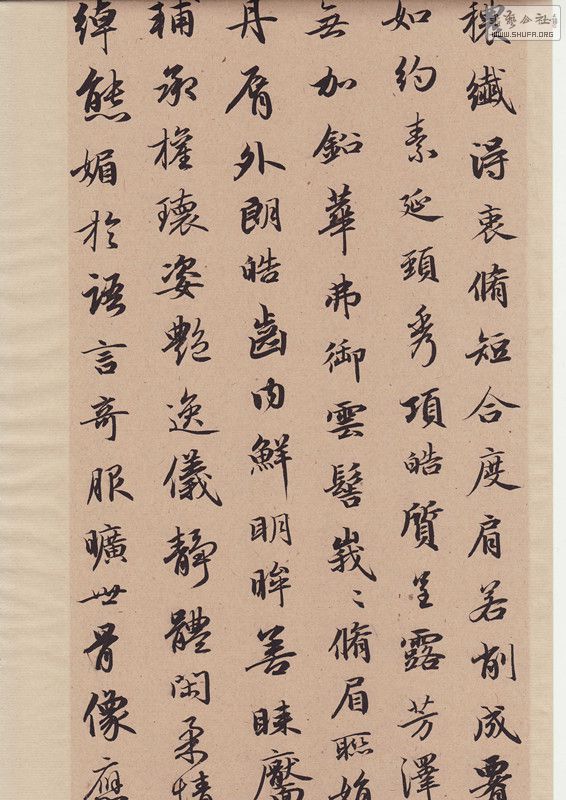 穠纖得衷脩短合度肩若削成
如約素延頸秀項皓質呈露芳澤
無加鉛華弗御雲髻峩〻脩眉聮娟
丹脣外朗皓齒内鮮明眸善睞
輔承權瓌姿艶逸儀靜體閑柔情
綽態媚於語言竒服曠世骨像應
書藝公社
WWW.SHUFA.ORG